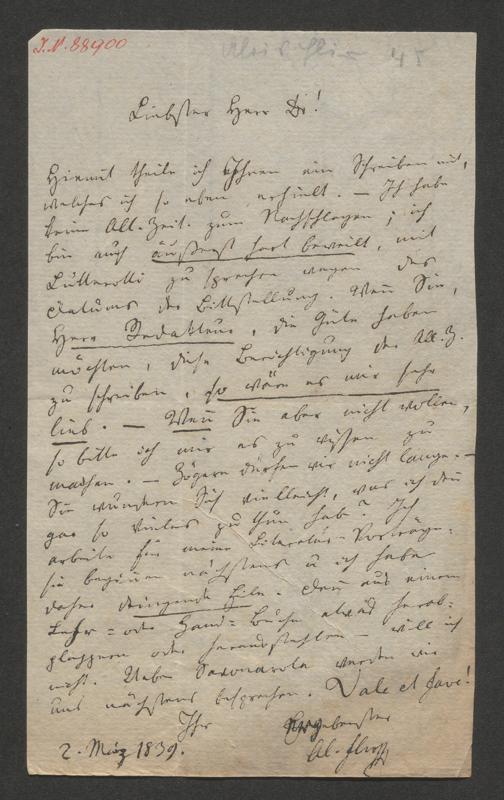 I.N. 88900
45
Liebster Herr Dr!
Hiemit theile ich Ihnen ein Schreiben mit,
welches ich so eben erhielt. — Ich habe
keine Allg. Zeit. zum Nachschlagen; ich
bin auch äußerst hart beweilt, mit
Lutterotti zu sprechen wegen des
Datums der Bittstellung. Wenn Sie,
Herr Redakteur, die Güte haben
möchten, diese Berichtigung der Allg. Z.
zu schreiben, so wäre es mir sehr
lieb. — Wenn Sie aber nicht wollen,
so bitte ich mir es zu wissen zu
machen. — Zögern dürfen wir nicht lange. —
Sie wundern Sich vielleicht, was ich denn
gar so Vieles zu thun habe? Ich
arbeite für meine Literatur-Vorträge:
sie beginnen nächstens u ich habe
daher dringende Eile. Denn aus einem
Lehr- oder Hand-Buche etwas herab-
plappern oder herausstehlen — will ich
nicht. Ueber Savonarola werden wir
uns nächstens besprechen. Vale et fave!
Ihr
Ergebenster
2. März 1839.
Al. Flir